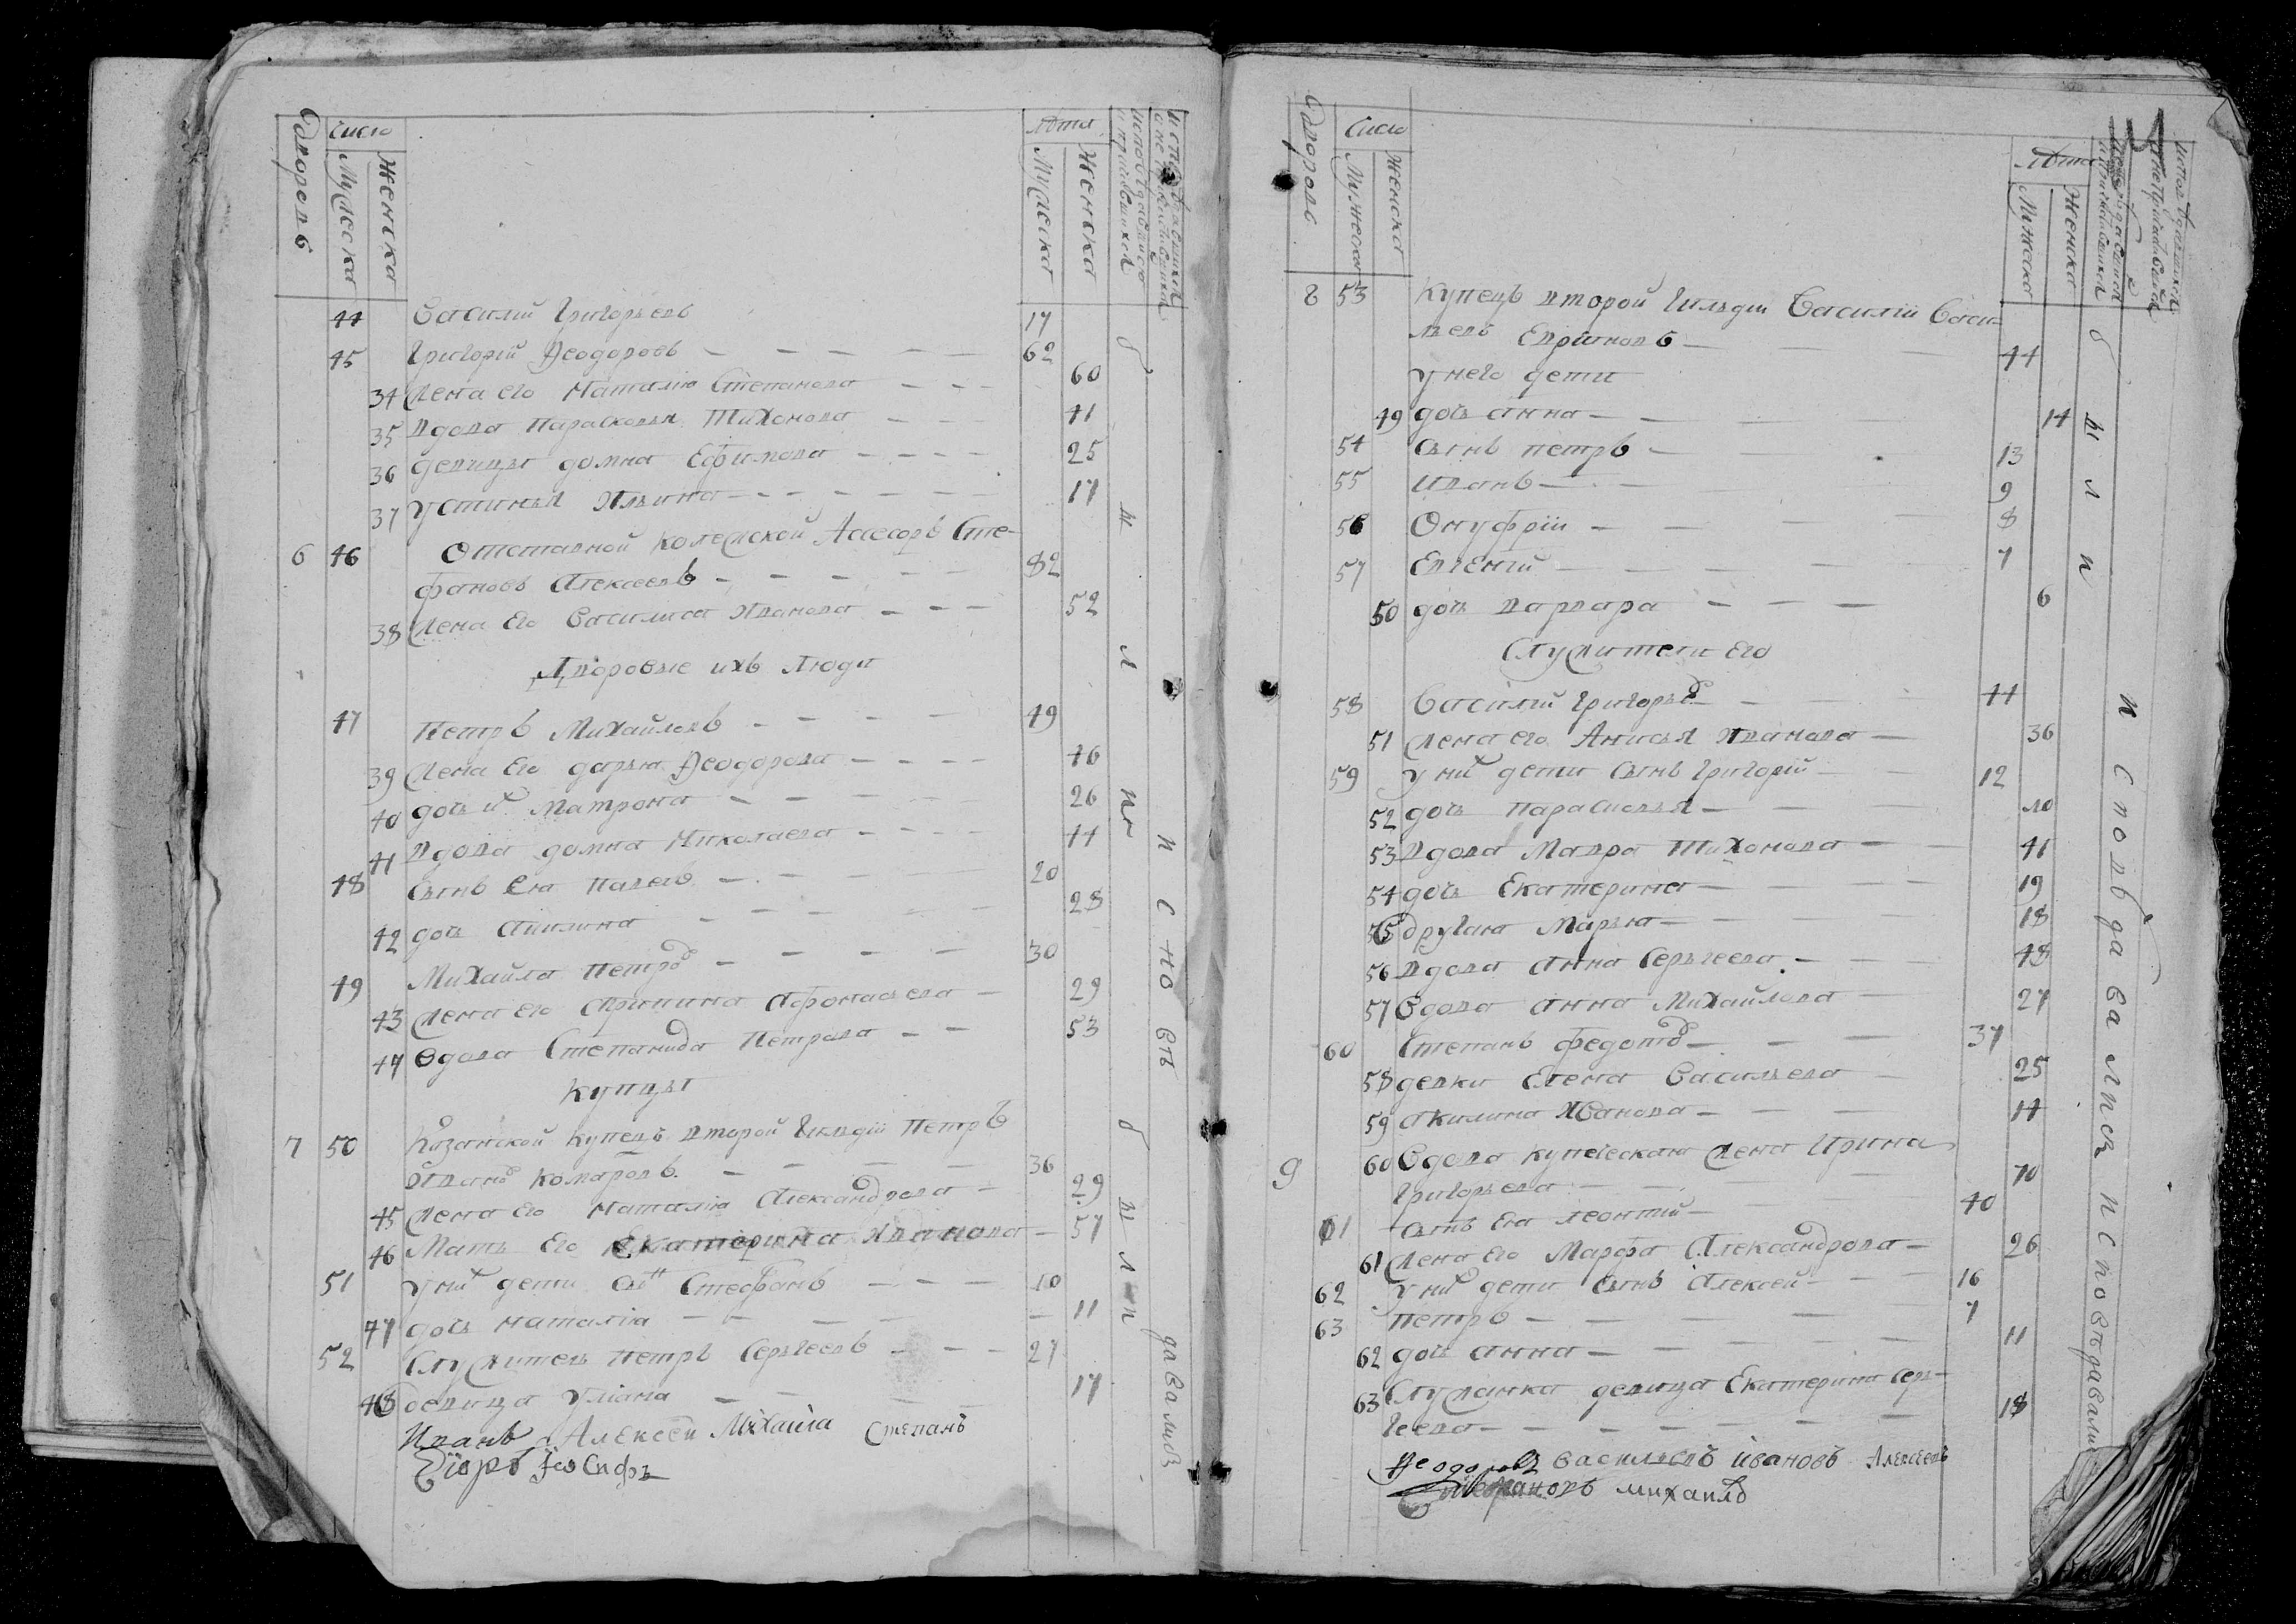 Дворовъ
Число
Мужеска
Женска
Лѣта
Мужеска
Женска
44 Василий Григорьевъ 17
45 Григорий Ѳеодоровъ 62
34 Жена его Наталия Степанова 60
35 Вдова Параскевья Тихонова 41
36 девицы домна Ефимова 25
37 Устинья Ильина 17
6 46 Отставной Колежской Ассесоръ Сте-
фановъ Алексеевъ 82
38 Жена Его Василиса Иванова 52
Дворовые ихъ Люди
47 Петръ Михайловъ 49
39 Жена Его дарья Ѳеодорова 46
40 дочь их Матрона 26
41 Вдова домна Николаева 44
48 Сынъ Ея Павелъ 20
42 дочь Акилина 28
49 Михайла Петровъ 30
43 Жена Его Афонасьева 29
44 Вдова Степанида Петрова 53
Купцы
7 50 Казанской купецъ второй Гильдіи Петръ
Ивановъ Комаровъ 36
45 Жена Его Наталия Александрова 29
46 Мать Его Екатерина Иванова 57
51 У них дети сынъ Стефанъ 10
47 дочь наталіа 11
52 Служитель Петръ Сергеевъ 27
48 девица Улиана 17
Иванъ Алексеи Михаила Степанъ
Іосифъ
были
исповѣ
были
давались
Дворовъ
Число
Мужеска
Женска
Лѣта
Мужеска
Женска
8 53 Купецъ второй Гильдіи Василій Васи-
льевъ Евріиновъ 44
у него дети
49 дочь анна 14
54 Сынъ петръ 13
55 иванъ 9
56 Онуфрій 8
57 Евгений 7
50 дочь варвара 6
Служители Его
58 Василий Григорьевъ 44
51 Жена его Анисья Иванова 36
59 у них дети Сынъ Григорій 12
52 дочь параскевья 10
53 Вдова Мавра Тихонова 41
54 дочь Екатерина 19
55 другая Марья 18
56 Вдова Анна Сергеева 48
57 Вдова Анна Михайлова 27
60 Степанъ Федотовъ 37
58 девки Елена Васильева 25
59 Акилина Иванова 14
9 60 Вдова купеческая жена Ирина
Григорьева 70
61 Сынъ Ея леонтий 40
61 Жена Его Марфа Александрова 26
62 У них дети Сынъ Алексей 16
63 петръ 7
62 дочь анна 11
63 Служанка девица Екатерина Сер-
геева 18
Ѳеодоровъ Васильевъ Ивановъ Алексеевъ
михаилъ
были
исповѣдавались исповѣдавались